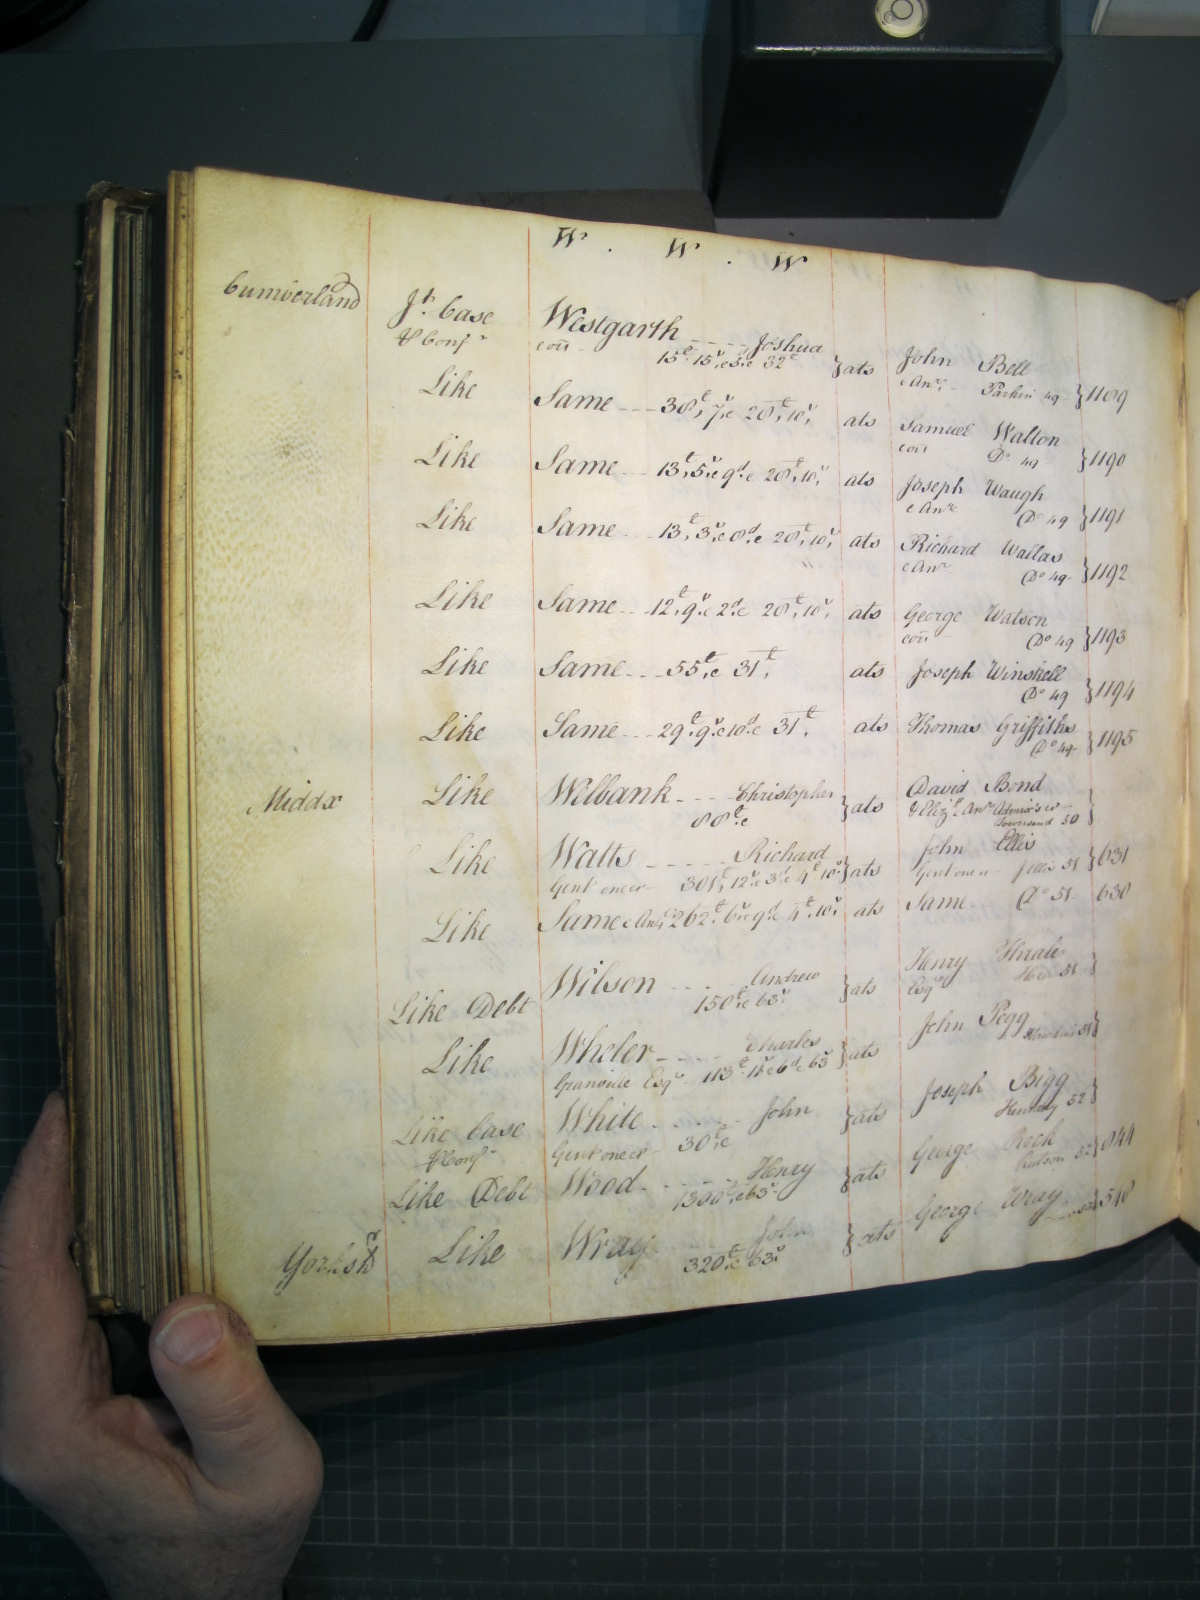 W . W . W
Cumberland Jt. Case Westgarth ---- Joshua } ats John Bell
& Conf con 15£ 15s c & c 32£ & Anr. Parkin 49 } 1189
Like Same --- 38£, 7s, c 28£, 10s, ats Samuel Walton
con Do 49 } 1190
Like Same --- 13£, 5s, c 9d. c 28£, 10s, ats Joseph Waugh
& Anr Do 49 } 1191
Like Same --- 13£, 3s, c 8d. c 28£, 10s, ats Richard Wallas
& Anr Do 49 } 1192
Like Same -- 12£, 9s. c 2d. c 28£, 10s, ats George Watson
con Do 49 } 1193
Like Same --- 55£, c 31£, ats Joseph Winskell
Do 49 } 1194
Like Same --- 29£. 9s. c 10d. c 31£, ats Thomas Griffiths
Do 49 } 1195
Middx Like Welbank --- Christopher } ats David Bond
88£. c & Eliz. Townsend 50 }
Like Watts ------ Richard } ats John Ellis
Gent oneer 301£, 12s. c 3d. c 4£ 10s Gent oneer Jellis 51 } 631
Like Same & Anr 262£. 6s. c 9d. c 4£. 10s. ats Same Do 51 630
Like Debt Wilson ---- Andrew } ats Henry Thrale
150£. c 63s. Esqr 51 }
Like Wheler ---- Charles } ats John Pegg
Granville Esqr 113£ c 6d. c 63s 51 }
Like Case White ---- John } ats Joseph Bigg
& Conf Gent oneer 30£. c 52 }
Like Debt Wood ------ Henry } ats George Rock
1300£. c 63s 52 } 844
Yorksh Like Wray ---- John } ats George Wray
320£. c 63s. 518